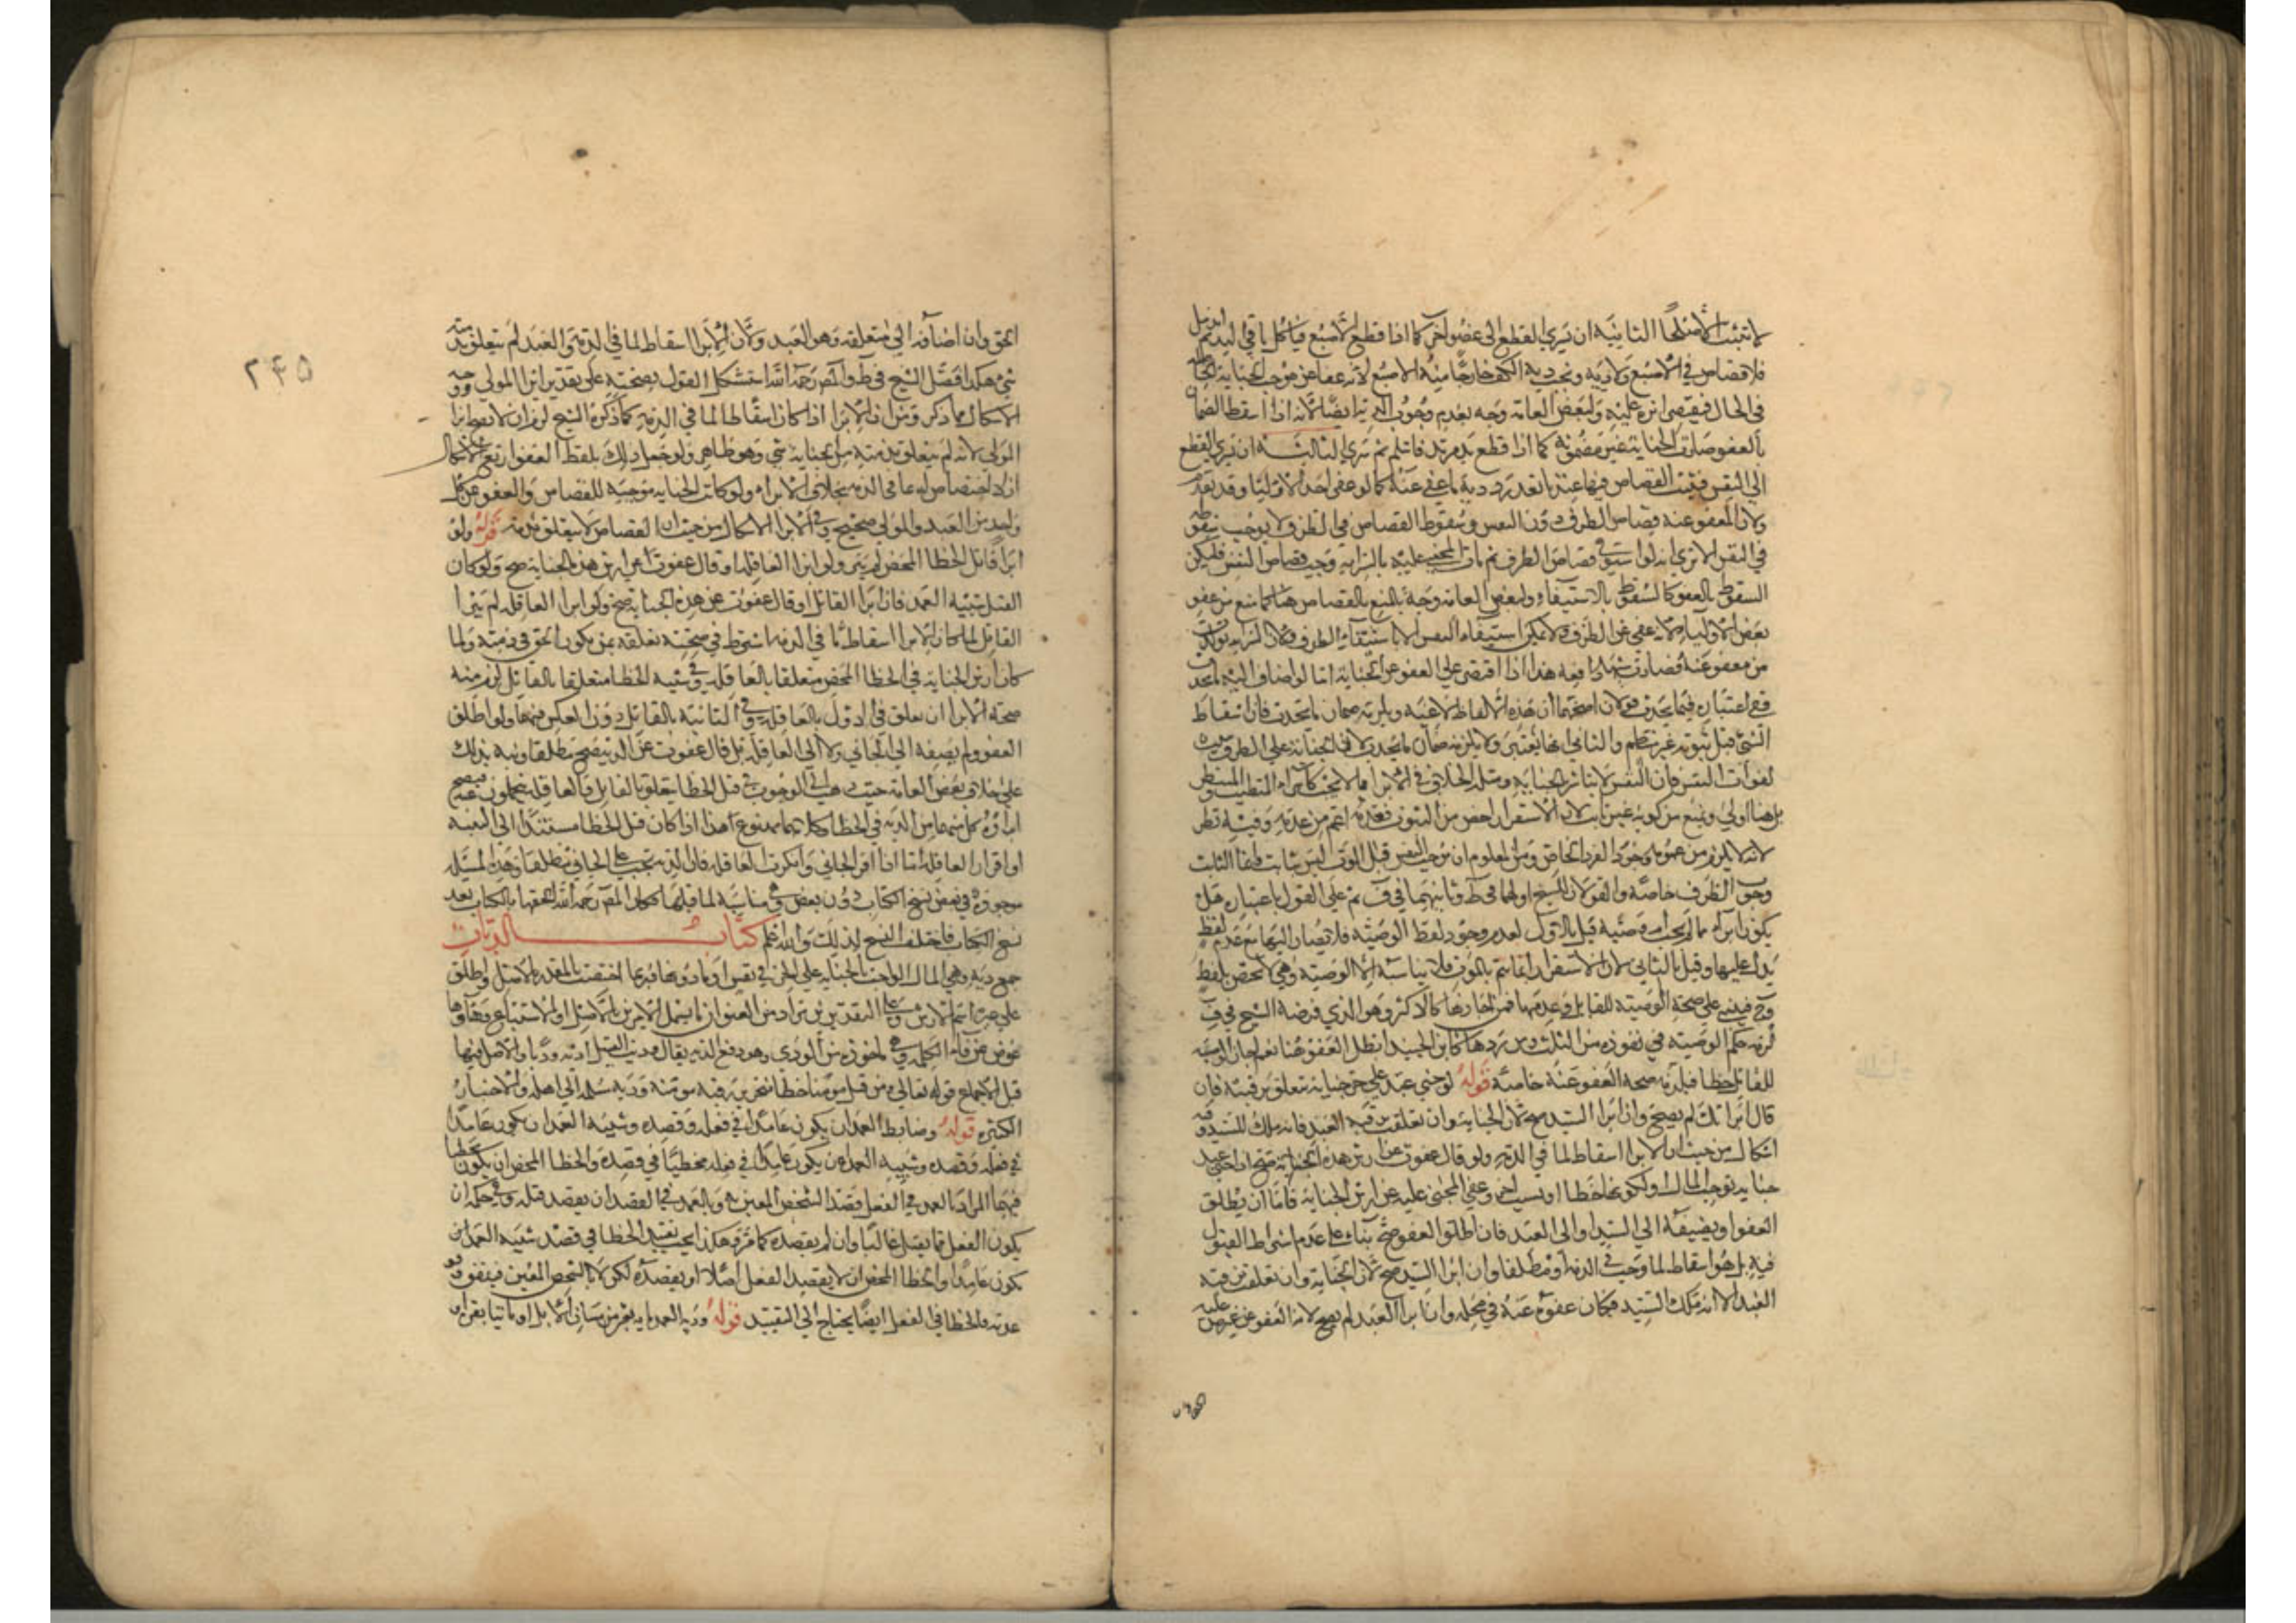 لا تثبت الا صلحا الثانية ان يسري القطع الى عضو اخر كما اذا قطع الاصبع فتاكل باقي اليد ثم اندمل
فلا قصاص في الاصبع ولا دية وتجب دية الكف خارجا منه الاصبع لانه عفا عن موجب الجناية
في الحال فيقتصر اثره عليه ولبعض العامة وجه بعدم وجوب ايضا لانه اذا اسقط الضمان
بالعفو صارت الجناية غير مضمونة كما اذا قطع يد مرتد فاسلم ثم سرى الثالثة ان يسري القطع
الى النفس فيثبت القصاص فيها عندنا بعد رد دية ما عفي عنه كما لو عفى احد الاوليا وقد تقدم
ولان المعفو عنه قصاص الطرف دون النفس وسقوط القصاص في الطرف لا يوجب سقوطه
في النفس الا ترى انه لو استوفى قصاص الطرف ثم مات المجني عليه بالسراية وجب قصاص النفس فليكن
السقوط بالعفو كالسقوط بالاستيفاء ولبعض العامة وجه بالمنع بالقصاص هنا كما منع من عفو
بعض الاولياء لانه عفى عن الطرف ولا يمكن استيفاء النفس الا باستيفاء الطرف ولان السراية تولدت
من معفو عنه فصارت شبهة دافعة هذا اذا اقتصر على العفو عن الجناية اما لو اضاف اليه ما يحدث
ففي اعتباره فيما يحدث قولان اصحهما ان هذه الالفاظ لاغية ويلزمه ضمان ما يحدث فان اسقاط
الشي قبل ثبوته غير منتظم والثاني انها تعتبر ولا يلزمه ضمان ما يحدث لان الجناية على الطرف
لفوات النفس فان النفس لا تباشر بالجناية ومثله الخلاف في الابراء مما لا يجب كابراء المتطبب
بل هنا اولى ويمنع من كونه غير ثابت لان الاستقرار اخص من الثبوت فعدمه اعم من عدمه وفيه نظر
لانه لا يلزم من عموم وجود الفرد الخاص ومن المعلوم ان موجب النفس قبل الموت ليس بثابت قطعا الثابت
وجوب الطرف خاصة والقولان للشيخ اولهما في ط وثانيهما في ف ثم على القول باعتباره هل
يكون ابراء مما لم يجب او وصية قيل بالاول لعدم وجود لفظ الوصية فلا يصار اليها مع عدم لفظ
يدل عليها وقيل بالثاني لان الاستقرار انما يتم بالموت فلا يناسبه الا الوصية وهي لا تختص بلفظ
وح فيبنى على صحة الوصية للقاتل وعدمها فمن اجازها كالاكثر وهو الذي فرضه الشيخ في ف
لزمه حكم الوصية في نفوذه من الثلث ومن ردها كابن الجنيد ابطل العفو هنا نعم اجاز الوصية
للقاتل خطا فيلزمه صحة العفو عنه خاصة قوله لو جنى عبد على حر جناية تتعلق برقبته فان
قال ابراتك لم يصح وان ابرا السيد صح لان الجناية وان تعلقت برقبة العبد فانه ملك للسيد وفيه
اشكال من حيث ان الابرا اسقاط لما في الذمة ولو قال عفوت عن ارش هذه الجناية صح اذا جنى عبد
جناية توجب المال اما لكونها خطا او بسبب اخر وعفى المجني عليه عن ارش الجناية فاما ان يطلق
العفو او يضيفه الى السيد او الى العبد فان اطلق العفو صح بناء على عدم اشتراط القبول
فيه بل هو اسقاط لما وجب في الذمة او مطلقا وان ابرا السيد صح لان الجناية وان تعلقت برقبة
العبد الا انه ملك السيد فكان عفوه عنه في محله وان ابرا العبد لم يصح لانه العفو عن غير من عليه
الحق وان اضافه الى متعلقه وهو العبد ولان الابرا اسقاط لما في الذمة والعبد لم يتعلق بذمته
شي هكذا فصل الشيخ في ط والمص رحمه الله استشكل القول بصحته على تقدير ابرا المولى ووجه
الاشكال مما ذكر ومن ان الابرا اذا كان اسقاطا لما في الذمة كما ذكره الشيخ لزم ان لا يصح ابرا
المولى لانه لم يتعلق بذمته من الجناية شي وهو ظاهر ولو جعل ذلك بلفظ العفو ارتفع الاشكال
اذ لا اختصاص له بما في الذمة بخلاف الابراء ولو كانت الجناية موجبة للقصاص والعفو عن كل
واحد من العبد والمولى صحيح وفي الابرا الاشكال من حيث ان القصاص لا يتعلق بذمة قوله ولو
ابرا قاتل الخطا المحض لم يبر ولو ابرا العاقلة او قال عفوت عن ارش هذه الجناية صح ولو كان
القتل شبيه العمد فان ابرا القاتل او قال عفوت عن هذه الجناية صح ولو ابرا العاقلة لم يبرا
القاتل لما كان الابرا اسقاط ما في الذمة اشترط في صحته تعلقه بمن يكون الحق في ذمته ولما
كان ارش الجناية في الخطا المحض متعلقا بالعاقلة وفي شبيه الخطا متعلقا بالقاتل لزم منه
صحة الابرا ان تعلق في الاول بالعاقلة وفي الثانية بالقاتل دون العكس فيهما ولو اطلق
العفو ولم يضفه الى الجاني ولا الى العاقلة بل قال عفوت عن الدية صح مطلقا ونبه بذلك
على خلاف بعض العامة حيث ذهب الى ان الوجوب في قتل الخطا يتعلق بالقاتل فالعاقلة يتحملون عنه فيصح
ابراء كل منهما من الدية في الخطا وكلاهما ممنوع هذا اذا كان قتل الخطا مستندا الى البينة
او اقرار العاقلة اما اذا اقر الجاني وانكرت العاقلة فان الدية تجب على الجاني مطلقا وهذه المسئلة
موجودة في بعض نسخ الكتاب دون بعض وفي مناسبة لما قبلها وكان المص رحمه الله الحقها بالكتاب بعد
نسخ الكتاب فاختلف النسخ لذلك والله اعلم كتاب الديات
جمع دية وهي المال الواجب بالجناية على الحر في نفس او ما دونها وربما اختصت بالمقدر بالاصل واطلق
على غيره اسم الارش وعلى التقديرين يراد من العنوان ما يشمل الامرين بالاصل او الاستتباع وهاؤها
عوض عن فاء الكلمة وهي ماخوذة من الودي وهو دفع الدية يقال وديت القتيل اديه وديا والاصل فيها
قبل الاجماع قوله تعالى ومن قتل مومنا خطا فتحرير رقبة مومنة ودية مسلمة الى اهله والاخبار
الكثيرة قوله وضابط العمد ان يكون عامدا في فعله وقصده وشبيه العمد ان يكون عامدا
في فعله وقصده وشبيه العمد ان يكون عامدا في فعله مخطيا في قصده والخطا المحض ان يكون مخطيا
فيهما المراد بالعمد في الفعل قصد الشخص المعين به وبالعمد في القصد ان يقصد قتله وفي حكمه ان
يكون الفعل مما يقتل غالبا وان لم يقصده كما مر وهكذا يجب تقييد الخطا في قصد شبيه العمد ان
يكون عامدا والخطا المحض ان لا يقصد الفعل اصلا او يقصده لكن لا بالشخص المعين فيتفق
عدمه فالخطا في الفعل ايضا يحتاج الى التقييد قوله ودية العمد ماية بعير من مسان الابل او مايتا بقرة او
٢٤٥